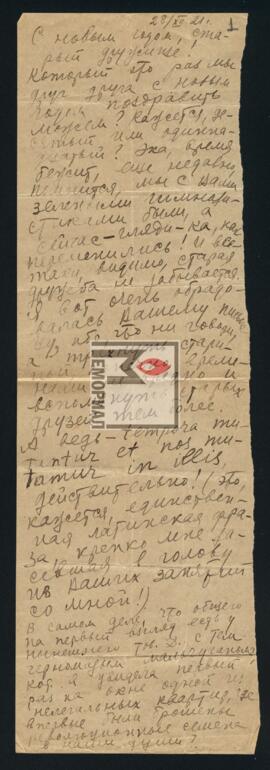 28/XII 21г.
1
С новым годом, ста-
рый дружище!
Который это раз мы
друг друга с новым
годом поздравить
можем? Кажется, де-
сятый или одинна-
дцатый? Эха, время
бежит, еще недавно,
помнится, мы с Вами
зелеными гимнази-
стиками были, а
сейчас-гляди-ка, как
переменились! И все-
таки, видимо, старая
дружба не забывается.
Я вот очень обрадо-
валась Вашему письму
что ни говори,
а тряхнуть стари-
ной
нами и
вспомнуть старых
друзей тем более.
А ведь-tempora mu-
tantur et nos mu-
tamur in illis,
действительно! (Это,
кажется, единствен-
ная латинская фра-
за крепко мне за-
севшая в голову
из Ваших занятий
со мной!)
В самом деле, что общего
на первый взгляд есть у
нынешнего с тем
мальчуганом
кот. я увидела первый
раз на окне одной из
нелегальных квартир, где
впервые были брошены
революционные семена
в наши души?
МЕМОРИАЛ